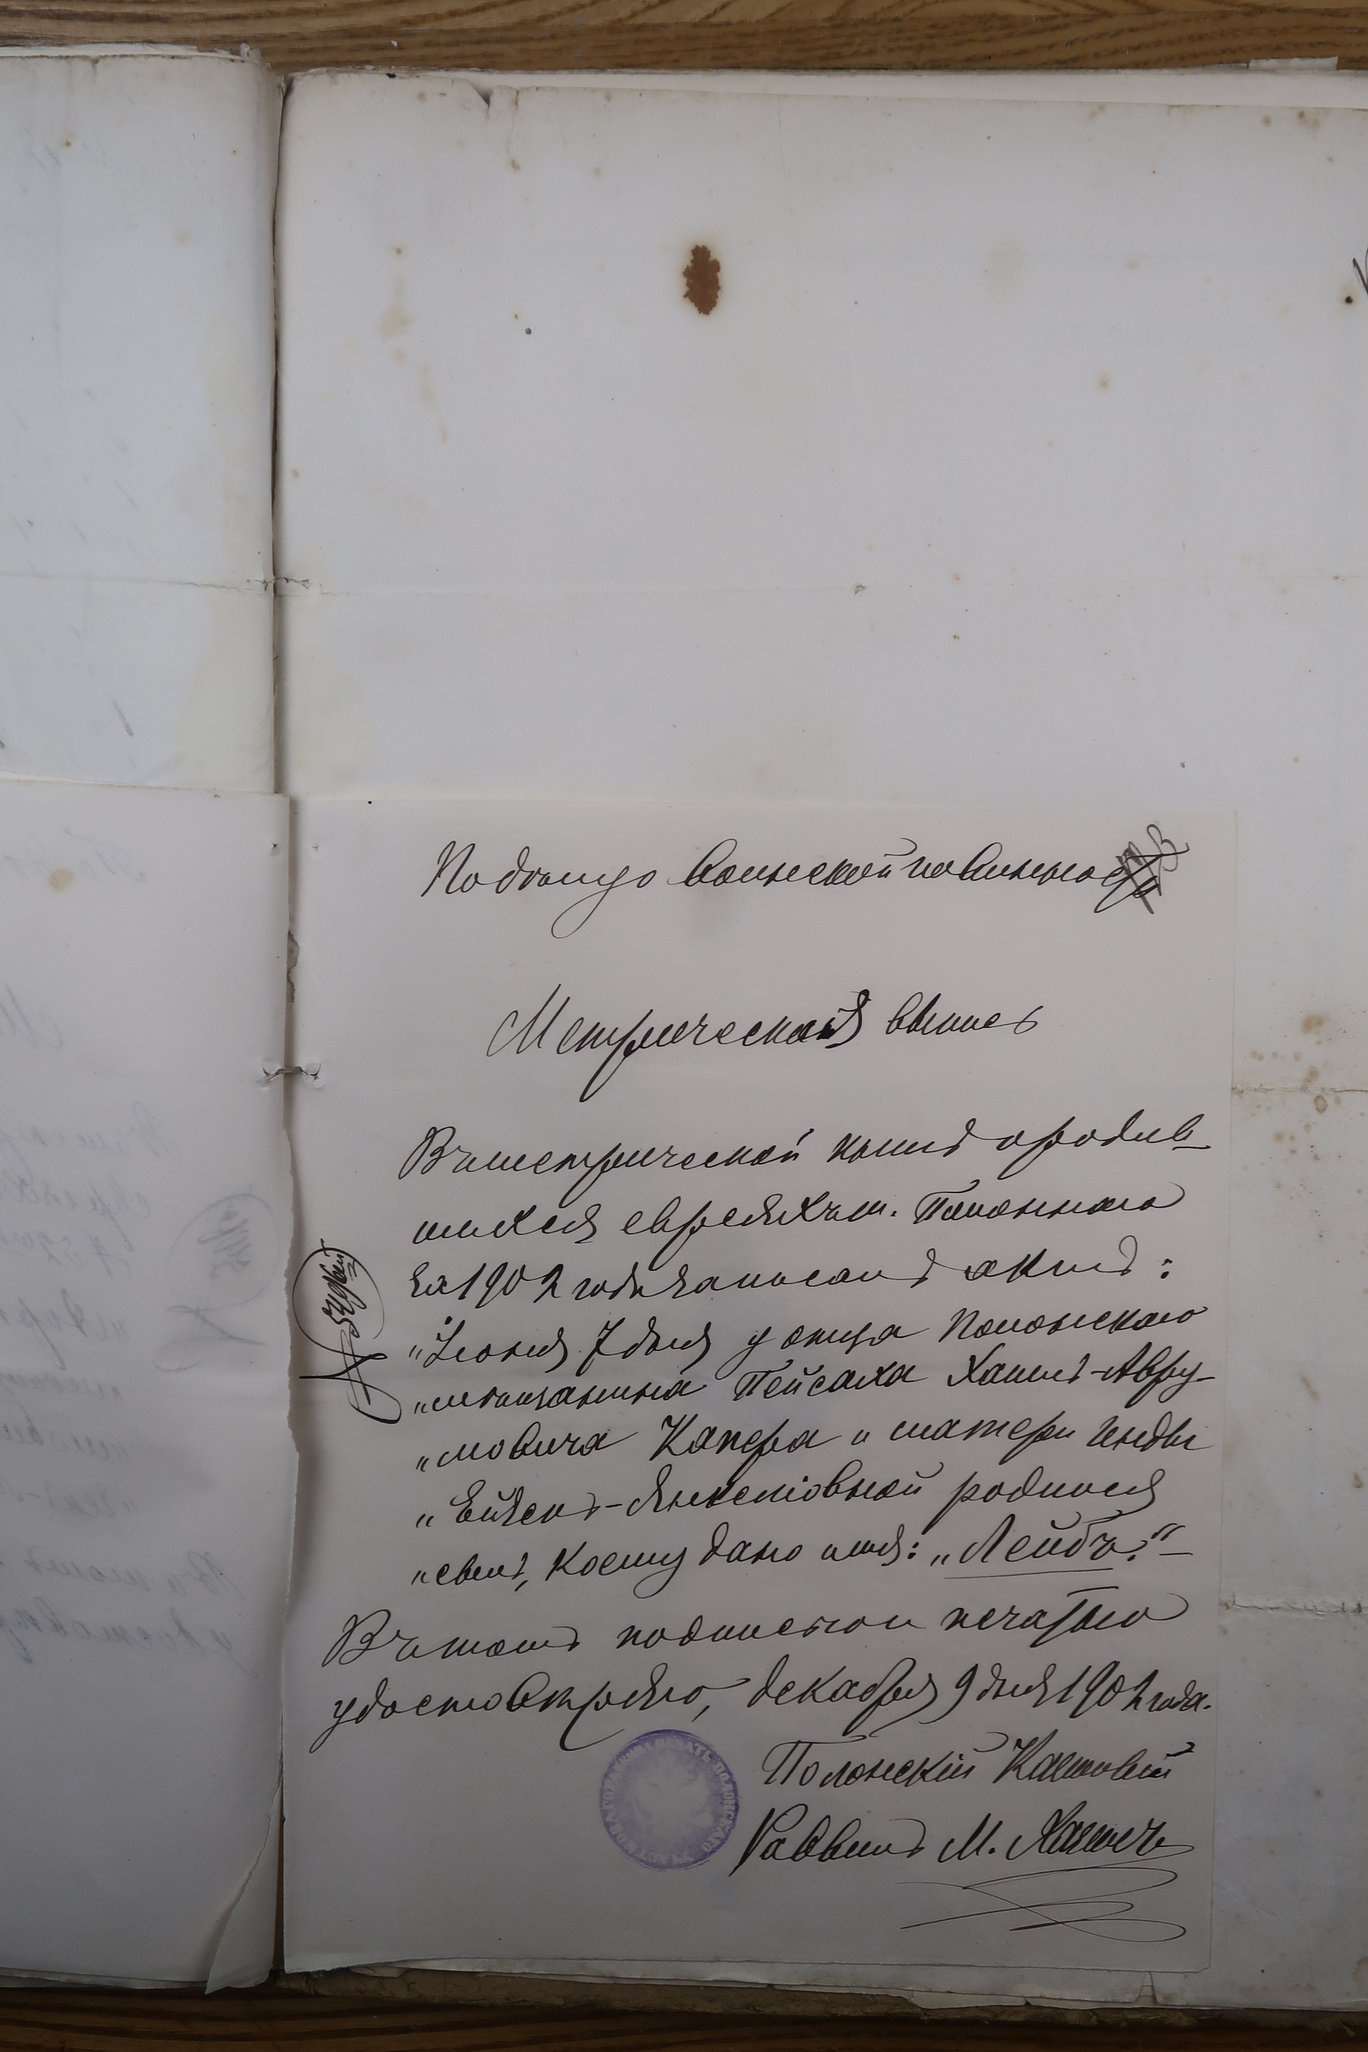 По дѣлу о воинской повинности
Метрическая выпись
Въ метрической книгѣ о родив-
шихся евреяхъ м. Полоннаго
за 1902 годъ записанъ актъ:
"Іюня 7 дня у отца Полонскаго
"мѣщанина Пейсаха Хаимъ-Авру-
"мовича Капера и матери Инды
"Ейзенъ-Янкелiовной родился
"сынъ, коему дано имя: "Лейбъ".–
Въ томъ подписью и печатью
удостовѣряю, декабря 9 дня 1902 года.
Полонскій Казенный
Раввинъ М.